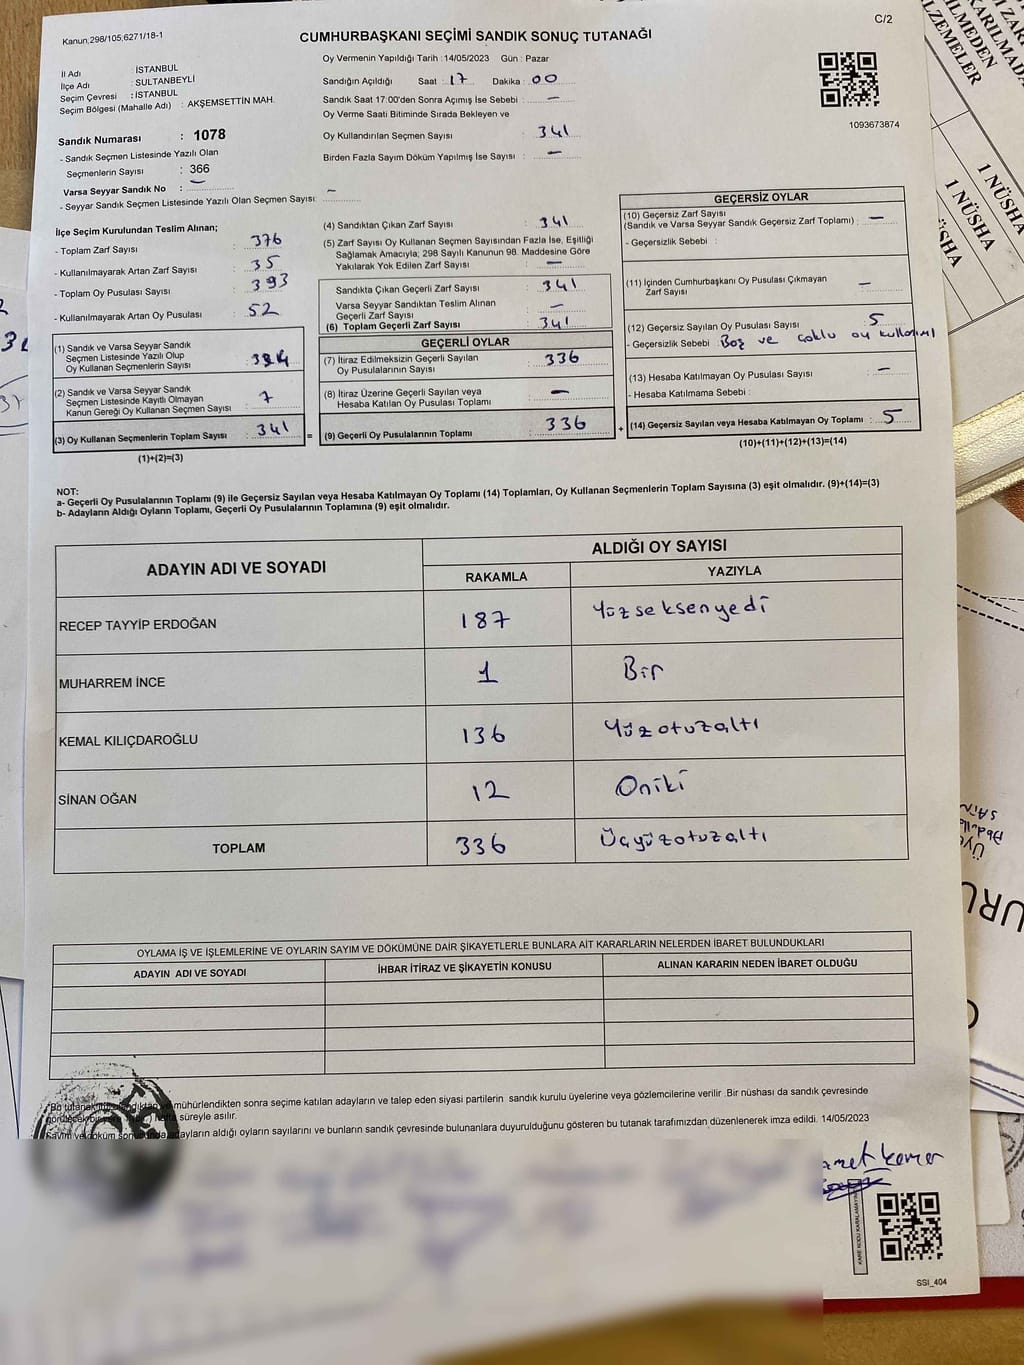 C/2
Kanun;298/105;6271/18-1
CUMHURBAŞKANI SEÇİMİ SANDIK SONUÇ TUTANAĞI
İl Adı : İSTANBUL
İlçe Adı : SULTANBEYLİ
Seçim Çevresi : İSTANBUL
Seçim Bölgesi (Mahalle Adı) : AKŞEMSETTİN MAH.
Sandık Numarası : 1078
- Sandık Seçmen Listesinde Yazılı Olan
Seçmenlerin Sayısı : 366
Varsa Seyyar Sandık No : —
- Seyyar Sandık Seçmen Listesinde Yazılı Olan Seçmen Sayısı: —
Oy Vermenin Yapıldığı Tarih : 14/05/2023 Gün : Pazar
Sandığın Açıldığı Saat : 17 Dakika : 00
Sandık Saat 17:00'den Sonra Açımış İse Sebebi : —
Oy Verme Saati Bitiminde Sırada Bekleyen ve
Oy Kullandırılan Seçmen Sayısı : 341
Birden Fazla Sayım Döküm Yapılmış İse Sayısı : —
1093673874
İlçe Seçim Kurulundan Teslim Alınan;
- Toplam Zarf Sayısı : 376
- Kullanılmayarak Artan Zarf Sayısı : 35
- Toplam Oy Pusulası Sayısı : 393
- Kullanılmayarak Artan Oy Pusulası : 52
(1) Sandık ve Varsa Seyyar Sandık
Seçmen Listesinde Yazılı Olup
Oy Kullanan Seçmenlerin Sayısı :
(2) Sandık ve Varsa Seyyar Sandık
Seçmen Listesinde Kayıtlı Olmayan
Kanun Gereği Oy Kullanan Seçmen Sayısı : 7
(3) Oy Kullanan Seçmenlerin Toplam Sayısı : 341 =
(1)+(2)=(3)
(4) Sandıktan Çıkan Zarf Sayısı : 341
(5) Zarf Sayısı Oy Kullanan Seçmen Sayısından Fazla İse, Eşitliği
Sağlamak Amacıyla; 298 Sayılı Kanunun 98. Maddesine Göre
Yakılarak Yok Edilen Zarf Sayısı : —
Sandıkta Çıkan Geçerli Zarf Sayısı : 341
Varsa Seyyar Sandıktan Teslim Alınan
Geçerli Zarf Sayısı : —
(6) Toplam Geçerli Zarf Sayısı : 341
GEÇERLİ OYLAR
(7) İtiraz Edilmeksizin Geçerli Sayılan
Oy Pusulalarının Sayısı : 336
(8) İtiraz Üzerine Geçerli Sayılan veya
Hesaba Katılan Oy Pusulası Toplamı : —
(9) Geçerli Oy Pusulalarının Toplamı : 336 +
GEÇERSİZ OYLAR
(10) Geçersiz Zarf Sayısı
(Sandık ve Varsa Seyyar Sandık Geçersiz Zarf Toplamı) : —
- Geçersizlik Sebebi :
(11) İçinden Cumhurbaşkanı Oy Pusulası Çıkmayan
Zarf Sayısı : —
(12) Geçersiz Sayılan Oy Pusulası Sayısı : 5
- Geçersizlik Sebebi : Boş ve çoklu oy kullanımı
(13) Hesaba Katılmayan Oy Pusulası Sayısı : —
- Hesaba Katılmama Sebebi :
(14) Geçersiz Sayılan veya Hesaba Katılmayan Oy Toplamı : 5
(10)+(11)+(12)+(13)=(14)
NOT:
a- Geçerli Oy Pusulalarının Toplamı (9) ile Geçersiz Sayılan veya Hesaba Katılmayan Oy Toplamı (14) Toplamları, Oy Kullanan Seçmenlerin Toplam Sayısına (3) eşit olmalıdır. (9)+(14)=(3)
b- Adayların Aldığı Oyların Toplamı, Geçerli Oy Pusulalarının Toplamına (9) eşit olmalıdır.
ADAYIN ADI VE SOYADI ALDIĞI OY SAYISI
RAKAMLA YAZIYLA
RECEP TAYYİP ERDOĞAN 187 Yüzseksenyedi
MUHARREM İNCE 1 Bir
KEMAL KILIÇDAROĞLU 136 Yüzotuzaltı
SİNAN OĞAN 12 Oniki
TOPLAM 336 Üçyüzotuzaltı
OYLAMA İŞ VE İŞLEMLERİNE VE OYLARIN SAYIM VE DÖKÜMÜNE DAİR ŞİKAYETLERLE BUNLARA AİT KARARLARIN NELERDEN İBARET BULUNDUKLARI
ADAYIN ADI VE SOYADI İHBAR İTİRAZ VE ŞİKAYETİN KONUSU ALINAN KARARIN NEDEN İBARET OLDUĞU
mühürlendikten sonra seçime katılan adayların ve talep eden siyasi partilerin sandık kurulu üyelerine veya gözlemcilerine verilir. Bir nüshası da sandık çevresinde
süreyle asılır.
adayların aldığı oyların sayılarını ve bunların sandık çevresinde bulunanlara duyurulduğunu gösteren bu tutanak tarafımızdan düzenlenerek imza edildi. 14/05/2023
SSI_404
1 NÜSHA
1 NÜSHA